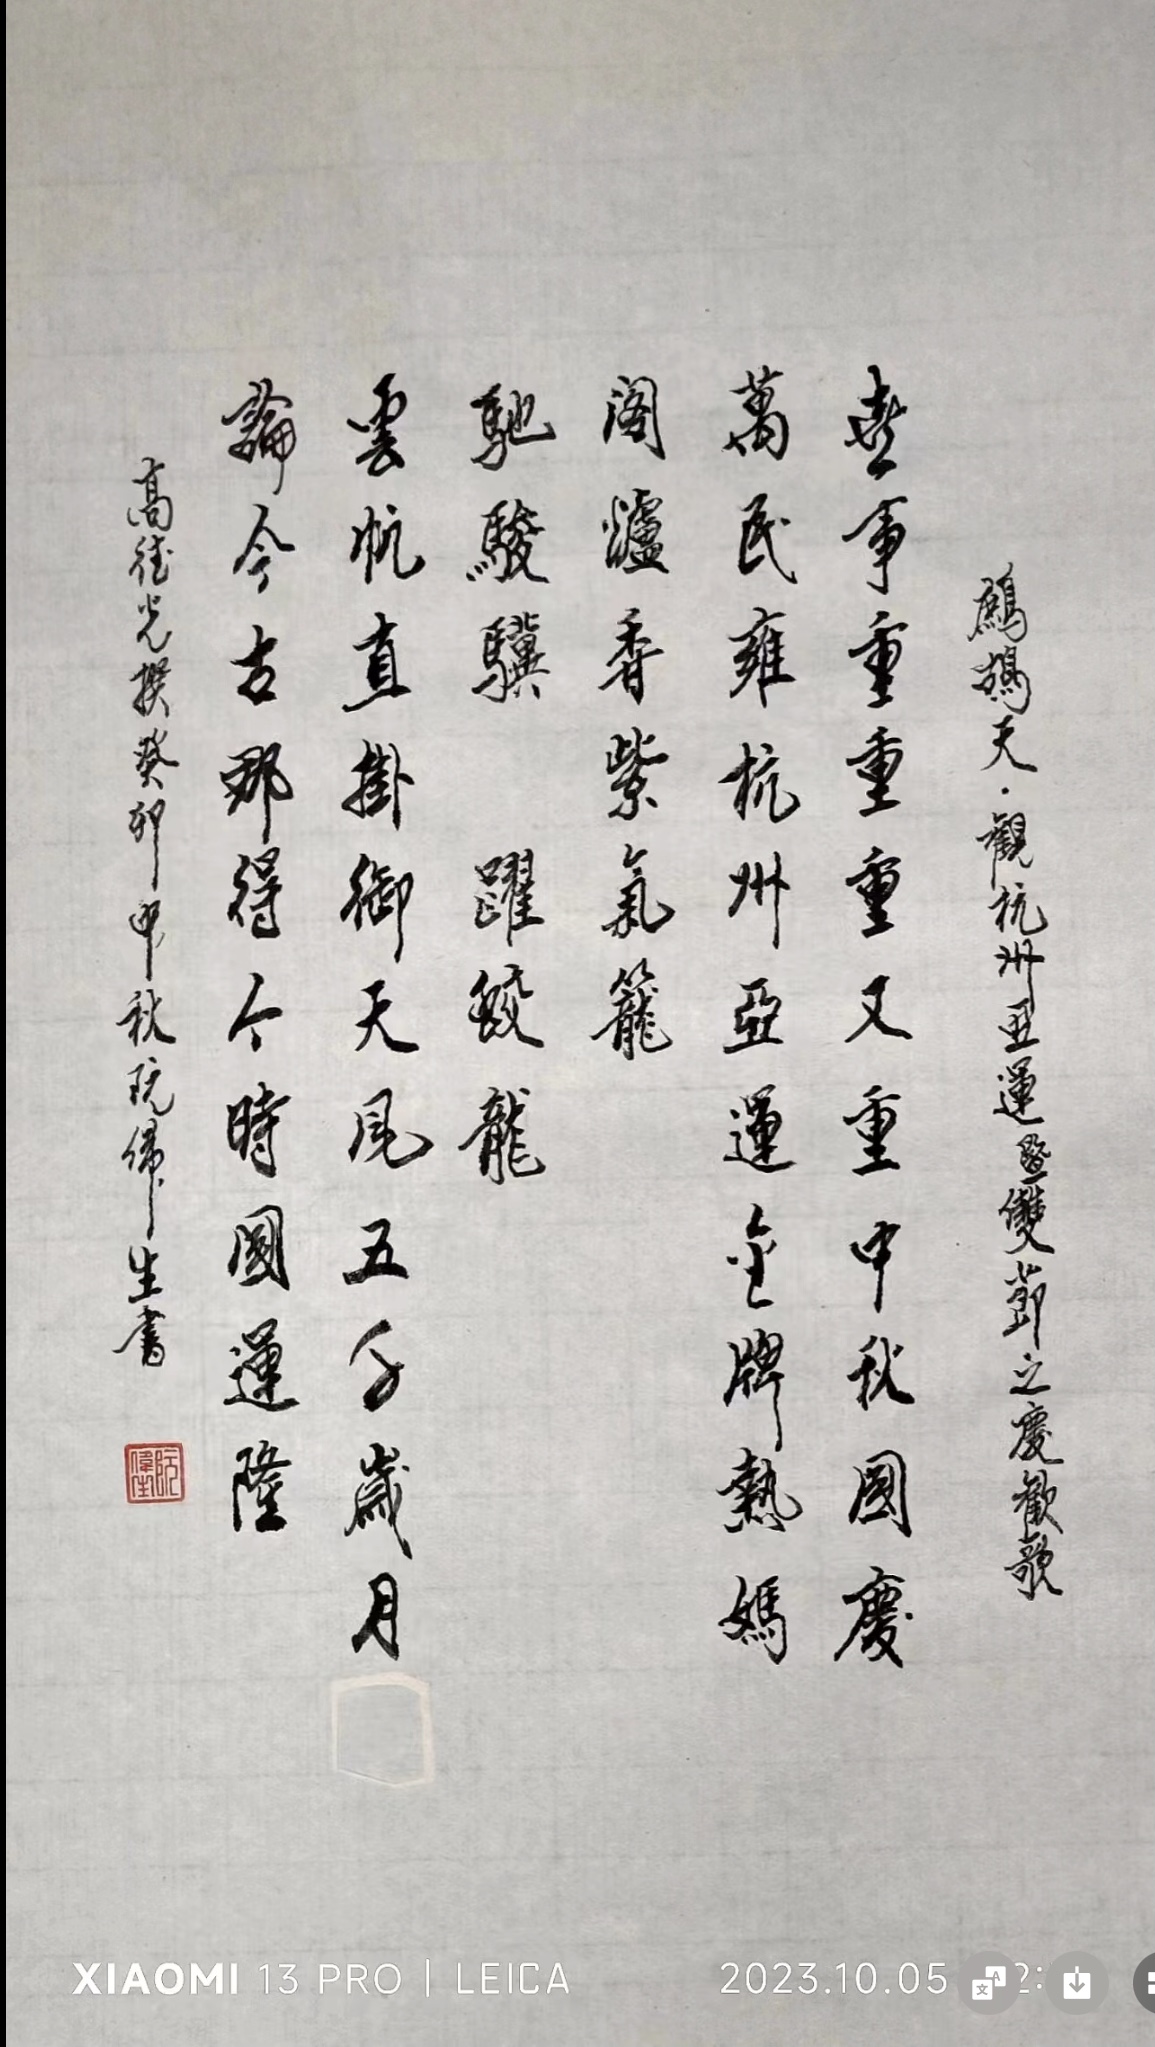 鷓鴣天·觀杭州亞運暨雙節之慶歡歌
喜事重重重又重中秋國慶
萬民雍杭州亞運金牌熱媽
阁爐香紫氣籠
馳駿驥 躍蛟龍
雲帆直掛御天风五千歲月
論今古那得今時國運隆
高德光撰癸卯中秋阮偉生書
阮偉生
XIAOMI 13 PRO | LEICA
2023.10.05